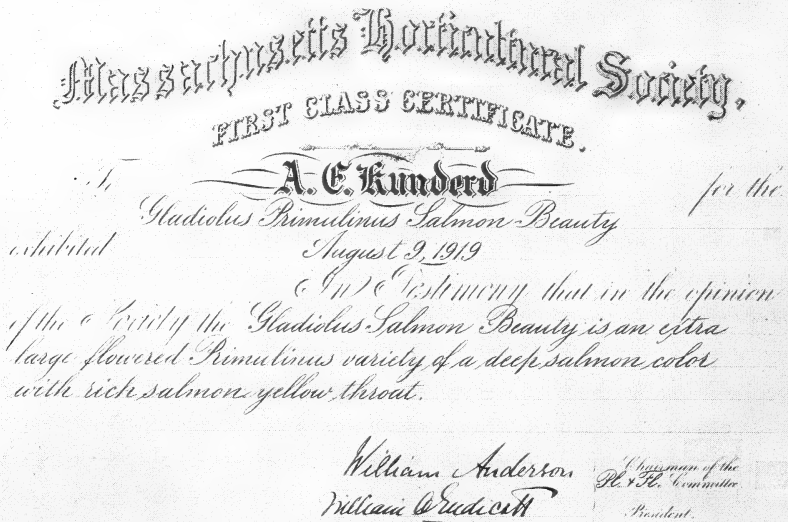 Massachusetts Horticultural Society.
FIRST CLASS CERTIFICATE.
To A. E. Kunderd for the
Gladiolus Primulinus Salmon Beauty
exhibited August 9, 1919
In Testimony that in the opinion
of the Society the Gladiolus Salmon Beauty is an extra
large flowered Primulinus variety of a deep salmon color
with rich salmon yellow throat.
William Anderson Chairman of the
Pl. & Fl. Committee
William C. Endicott President.